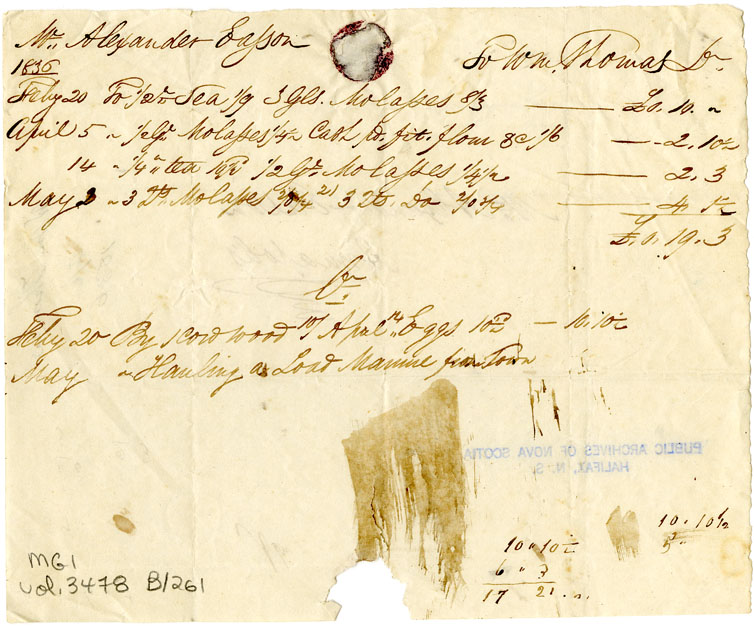 Mr. Alexander Easson
To Wm. Thomas Dr.
1836
Feby 20 To 1/2 lb Tea 1/9 3 Gls. Molasses 8/3 £0. 10. "
April 5 " 1/2 Gn Molasses 1/4½ Cash pd. flour &c 1/6 2. 10½
14 " 1/4 " tea 1/2 Gn Molasses 1/4½ 2. 3
May " 3 Molasses 2/0¾ 21 3 Do 2/0¾ 4 1½
£.0. 19. 3
Cr.
Feby 20 By 1 Cord wood 10/ April 14 " Eggs 10½ 10. 10½
May " Hauling a Load Manure from Town
PUBLIC ARCHIVES OF NOVA SCOTIA
HALIFAX, N. S.
10 " 10½
10 " 10½
6 " 3
17 21
MG1
vol. 3478 B/261